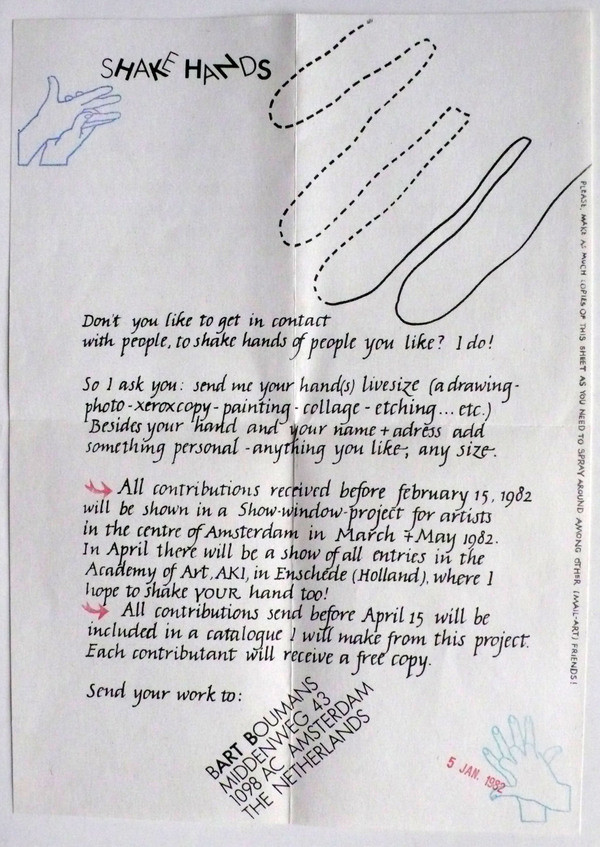 SHAKE HANDS
Don't you like to get in contact
with people, to shake hands of people you like? I do!
So I ask you: send me your hand(s) livesize (a drawing-
photo-xeroxcopy-painting-collage-etching... etc.)
Besides your hand and your name + adress add
something personal -anything you like-, any size-.
All contributions received before february 15, 1982
will be shown in a Show-window-project for artists
in the centre of Amsterdam in March + May 1982.
In April there will be a show of all entries in the
Academy of Art, AKI, in Enschede (Holland), where I
hope to shake YOUR hand too!
All contributions send before April 15 will be
included in a catalogue I will make from this project.
Each contributant will receive a free copy.
Send your work to:
BART BOUMANS
MIDDENWEG 43
1098 AC AMSTERDAM
THE NETHERLANDS
5 JAN. 1982
PLEASE, MAKE AS MUCH COPIES OF THIS SHEET AS YOU NEED TO SPRAY AROUND AMONG OTHER (MAIL-ART) FRIENDS!